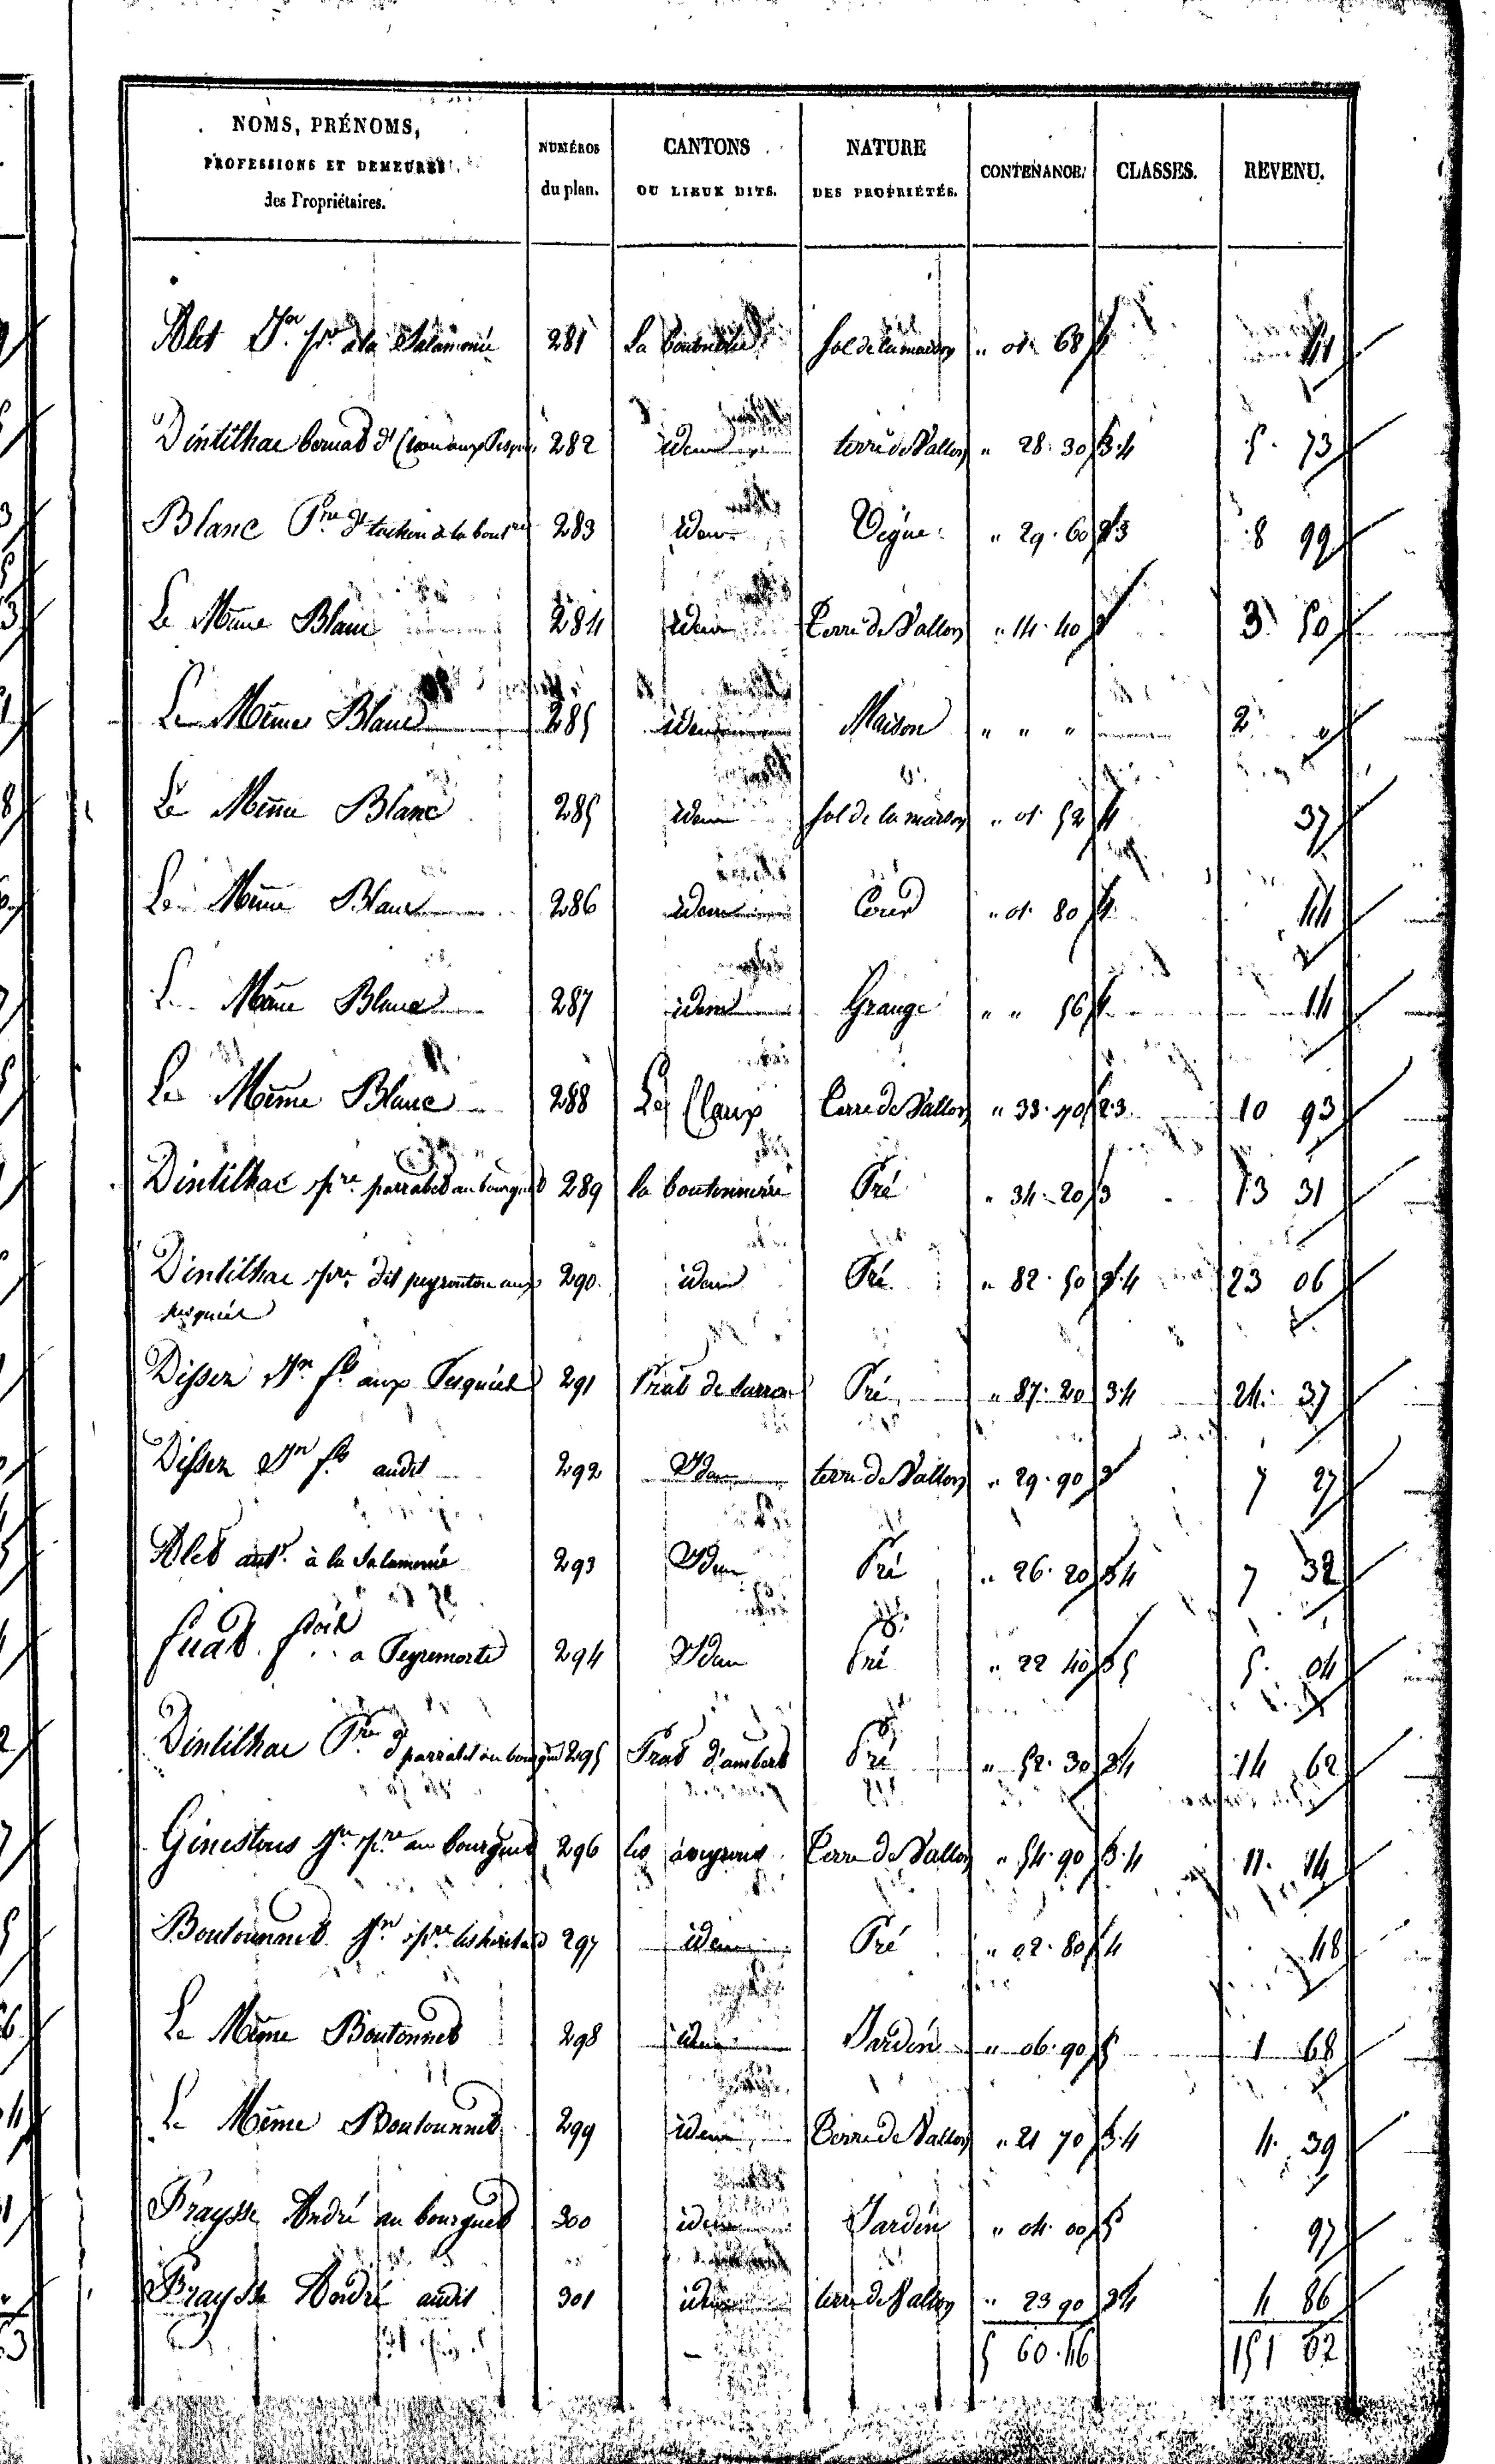 NOMS, PRÉNOMS, PROFESSIONS ET DEMEURES des Propriétaires. NUMÉROS du plan. CANTONS OU LIEUX DITS. NATURE DES PROPRIÉTÉS. CONTENANCE. CLASSES. REVENU.
Alet Jn. pre à la Salamonie 281 La boutonnerie Sol de la maison " 01 68 4 41
Dintilhac bernad dt aux Pesquiés 282 idem terre de Vallon " 28 30 3.4 5 73
Blanc Pre dt à la bout 283 idem Vigne " 29 60 2.3 8 99
Le Même Blanc 284 idem Terre de Vallon " 14 40 3 3 50
Le Même Blanc 285 idem Maison " " " 2 "
Le Même Blanc 285 idem Sol de la maison " 01 52 4 37
Le Même Blanc 286 idem Cour " 01 80 4 44
Le Même Blanc 287 idem Grange " " 56 4 14
Le Même Blanc 288 Les Claux Terre de Vallon " 33 70 2.3 10 93
Dintilhac pre parrabet au bourguet 289 la boutonnerie Pré " 34 20 3 13 31
Dintilhac pre dit peyrouton aux 290 idem Pré " 82 50 3.4 23 06
pesquiés
Dissez Jn fs aux Pesquiés 291 Prat de Pré " 87 20 3.4 24 37
Dissez Jn fs audit 292 Idem terre de Vallon " 29 90 3 7 27
Alet ant. à la Salamonie 293 Idem Pré " 26 20 3.4 7 32
fois a Peyremorte 294 Idem Pré " 22 40 3.5 5 04
Dintilhac Pre dt parrabet au bourguet 295 Prat d'ambert Pré " 52 30 3.4 14 62
Ginestous Jn pre au bourguet 296 les Terre de Vallon " 54 90 3.4 11 14
Boutonnet Jn pre 297 idem Pré " 02 80 4 48
Le Même Boutonnet 298 idem Jardin " 06 90 5 1 68
Le Même Boutonnet 299 idem Terre de Vallon " 21 70 3.4 4 39
Fraysse André au bourguet 300 idem Jardin " 04 00 5 97
Fraysse André audit 301 idem terre de Vallon " 23 90 3.4 4 86
5 60 46 151 62